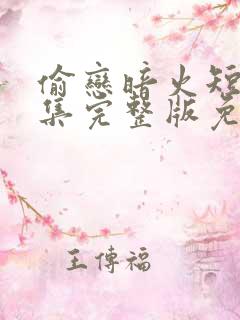 偷戀暗火短
集完整版免
王傳福